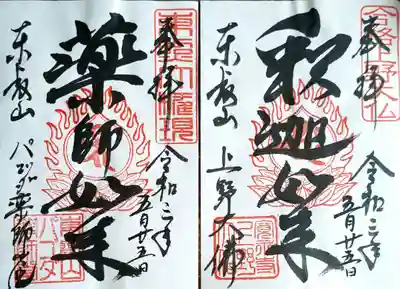 奉拝
薬師如来
令和三年
五月廿五日
東叡山
パゴダ薬師堂
奉拝
釈迦如来
令和三年
五月廿五日
東叡山
上野大佛